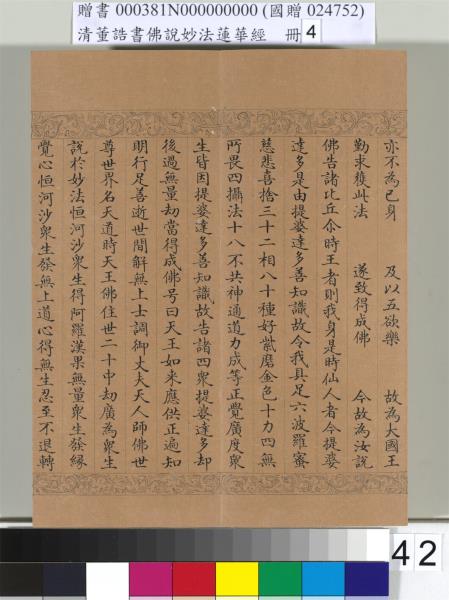 贈書 000381N000000000 (國贈 024752)
清董誥書佛說妙法蓮華經 冊 4
亦不為己身 及以五欲樂 故為大國王
勤求獲此法 遂致得成佛 今故為汝說
佛告諸比丘尒時王者則我身是時仙人者今提婆
達多是由提婆達多善知識故令我具足六波羅蜜
慈悲喜捨三十二相八十種好紫磨金色十力四無
所畏四攝法十八不共神通道力成等正覺廣度眾
生皆因提婆達多善知識故告諸四眾提婆達多却
後過無量劫當得成佛号曰天王如来應供正遍知
明行足善逝世間解無上士調御丈夫天人師佛世
尊世界名天道時天王佛住世二十中劫廣為眾生
說於妙法恒河沙眾生得阿羅漢果無量眾生發緣
覺心恒河沙眾生發無上道心得無生忍至不退轉
42